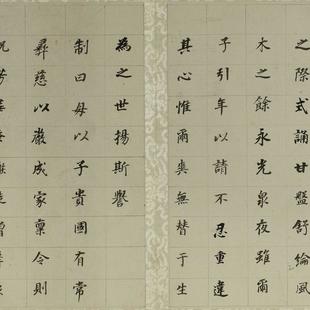 之際式誦甘盤舒風
木之餘永光泉夜雖爾
子引年以請不忍重違
其心惟爾無替于生
為之世揚斯譽
制曰母以子貴國有常
彝慈以嚴成家稟令則